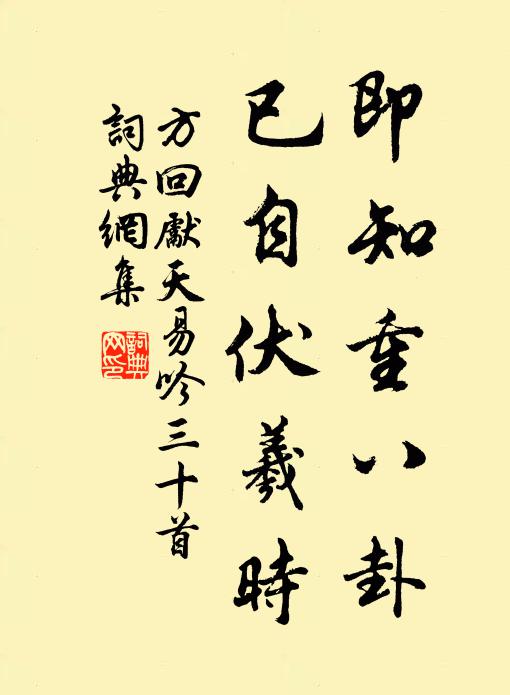 即知重八卦
已自伏羲時
方回獻天易吟三十首
詞典網集
詞典網印